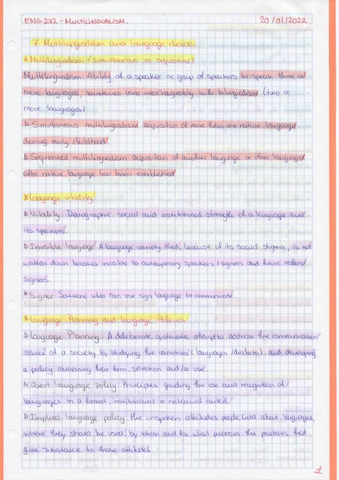 ENG-232 - MULTILINGUALISM. 20/01/2022
7. Multilingualism and language choice
Multilingualism (simultaneous vs sequential)
Multilingualism Ability of a speaker or group of speakers to speak three or
more languages, sometimes used interchangeably with bilingualism (two or
more languages)
Simultaneous multilingualism acquisition of more than one native language
during early childhood
Sequential multilingualism acquisition of another language or other languages
after native language has been established
Language vitality
Vitality Demographic, social and institutional strength of a language and
its speakers
Invisible language A language variety that, because of its social stigma, is not
written down becomes invisible to contemporary speakers/signers and future readers/
signers
Signer Someone who can use sign language to communicate
Language Planning and language Policies
Language Planning A deliberate systematic attempt to address the communication
issues of a society by studying the varieties (languages/dialects) and developing
a policy concerning their form, selection and/or use.
Overt language policy Principles guiding the use and recognition of
languages in a formal, institutional or national context
Implied language policy the unspoken attitudes people hold about languages,
where they should be used, by whom and for what purposes the practices that
give substance to those attitudes
1